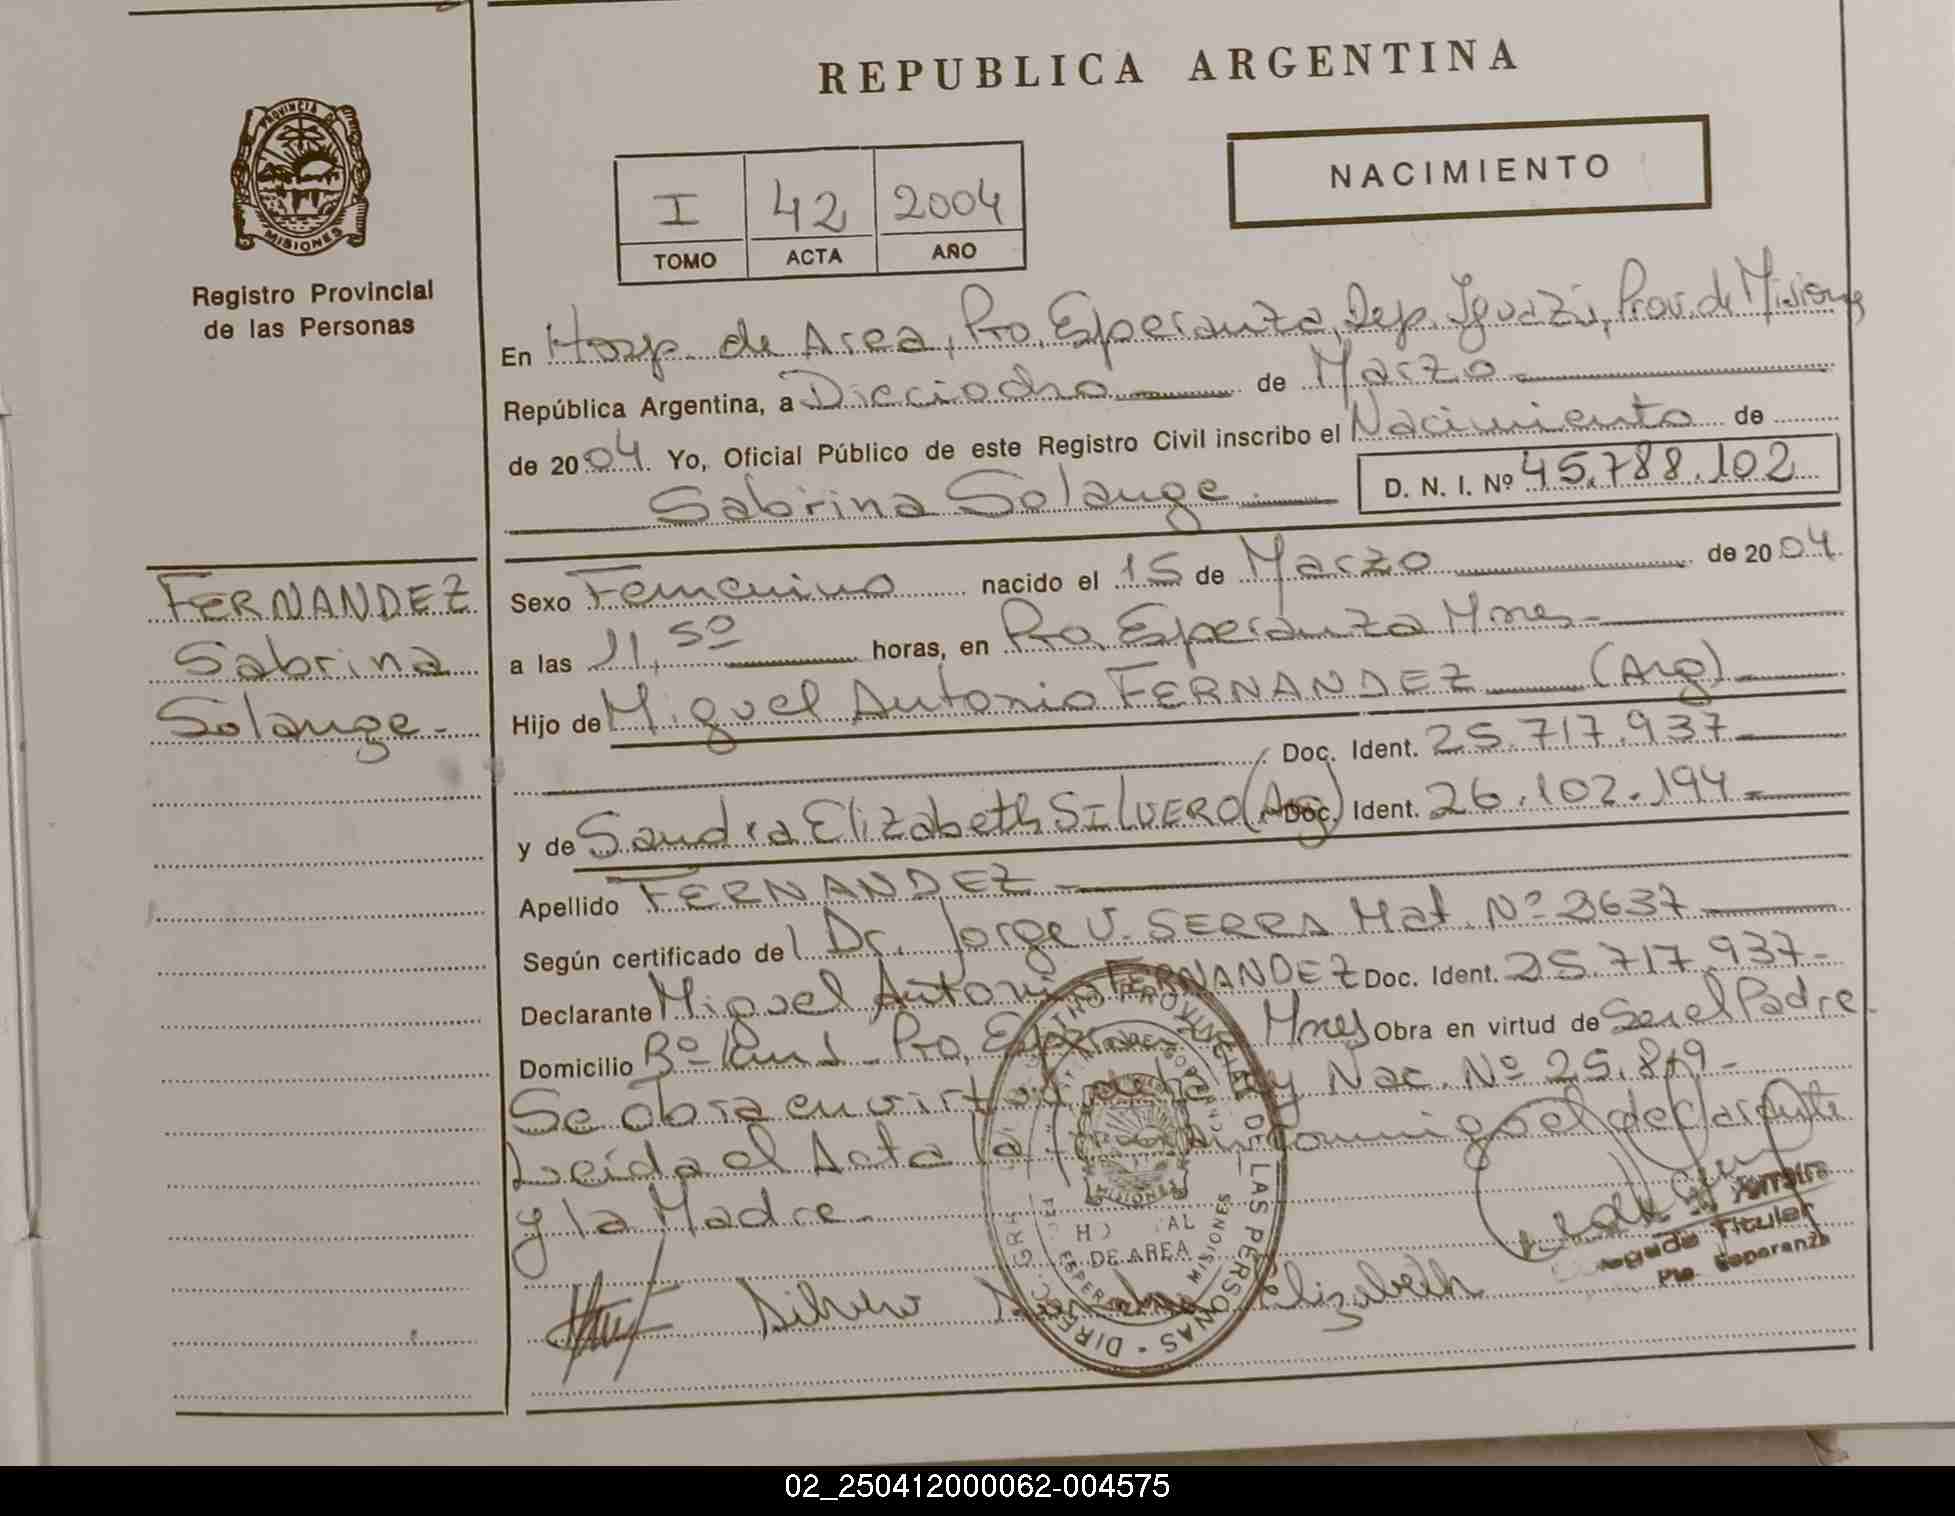 REPUBLICA ARGENTINA
PROVINCIA DE
MISIONES
Registro Provincial
de las Personas
I 42 2004
TOMO ACTA AÑO
NACIMIENTO
En Hosp. de Area, Pto. Esperanza, Dep. Iguazú, Prov. de Misiones
República Argentina, a Dieciocho de Marzo
de 2004. Yo, Oficial Público de este Registro Civil inscribo el Nacimiento de
Sabrina Solange D. N. I. Nº 45.788.102
FERNANDEZ
Sabrina
Solange
Sexo Femenino nacido el 15 de Marzo de 2004
a las 11,50 horas, en Pto. Esperanza Mnes
Hijo de Miguel Antonio FERNANDEZ (Arg)
Doc. Ident. 25.717.937
y de Sandra Elizabeth SILVERO (Arg) Doc. Ident. 26.102.194
Apellido FERNANDEZ
Según certificado del Dr. Jorge V. SERRA Mat. Nº 3637
Declarante Miguel Antonio FERNANDEZ Doc. Ident. 25.717.937
Domicilio Bº Pto. Esperanza Mnes Obra en virtud de Ser el Padre
Se obra en virtud de la Ley Nac. Nº 25.819
Leída el Acta la conmigo el declarante
y la Madre
Silvero Sandra Elizabeth
REGISTRO PROVINCIAL DE LAS PERSONAS
MISIONES
DE AREA
Titular
Pto. Esperanza
02_250412000062-004575